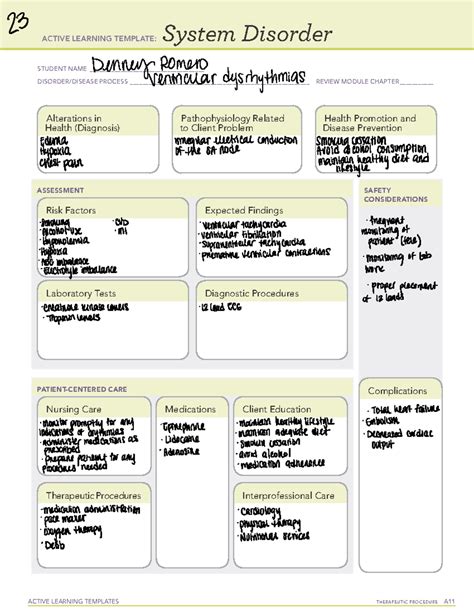 23
ACTIVE LEARNING TEMPLATE: System Disorder
STUDENT NAME Denney Romero
DISORDER/DISEASE PROCESS Ventricular dysrhythmias REVIEW MODULE CHAPTER
Alterations in
Health (Diagnosis)
Edema
Hypoxia
Chest pain
Pathophysiology Related
to Client Problem
Irregular electrical conduction
of the SA node
Health Promotion and
Disease Prevention
Smoking cessation
Avoid alcohol consumption
maintain healthy diet and
lifestyle
ASSESSMENT
SAFETY
CONSIDERATIONS
Risk Factors
• Smoking
• alcohol use
• Hypovolemia
• Hypoxia
• imbalance
• Electrolyte imbalance
• MI
Expected Findings
• Ventricular tachycardia
• ventricular fibrillation
• Supraventricular tachycardia
• Premature ventricular contractions
• frequent
monitoring of
patient (tele)
• monitoring of lab
work
• proper placement
of 12 leads
Laboratory Tests
• Creatinine kinase levels
• Troponin levels
Diagnostic Procedures
• 12 lead ECG
PATIENT-CENTERED CARE
Complications
• Total heart failure
• Embolism
• Decreased cardiac
output
Nursing Care
• monitor promptly for any
indications of dysrhythmias
• administer medications as
prescribed
• prepare patient for any
procedures needed
Medications
• Epinephrine
• Lidocaine
• Adenosine
Client Education
• maintain healthy lifestyle
• maintain adequate diet
• Smoking cessation
• avoid alcohol
• medication adherence
Therapeutic Procedures
• medication administration
• pace maker
• oxygen therapy
Interprofessional Care
• Cardiology
• physical therapy
• Nutritional services
ACTIVE LEARNING TEMPLATES
THERAPEUTIC PROCEDURE A11